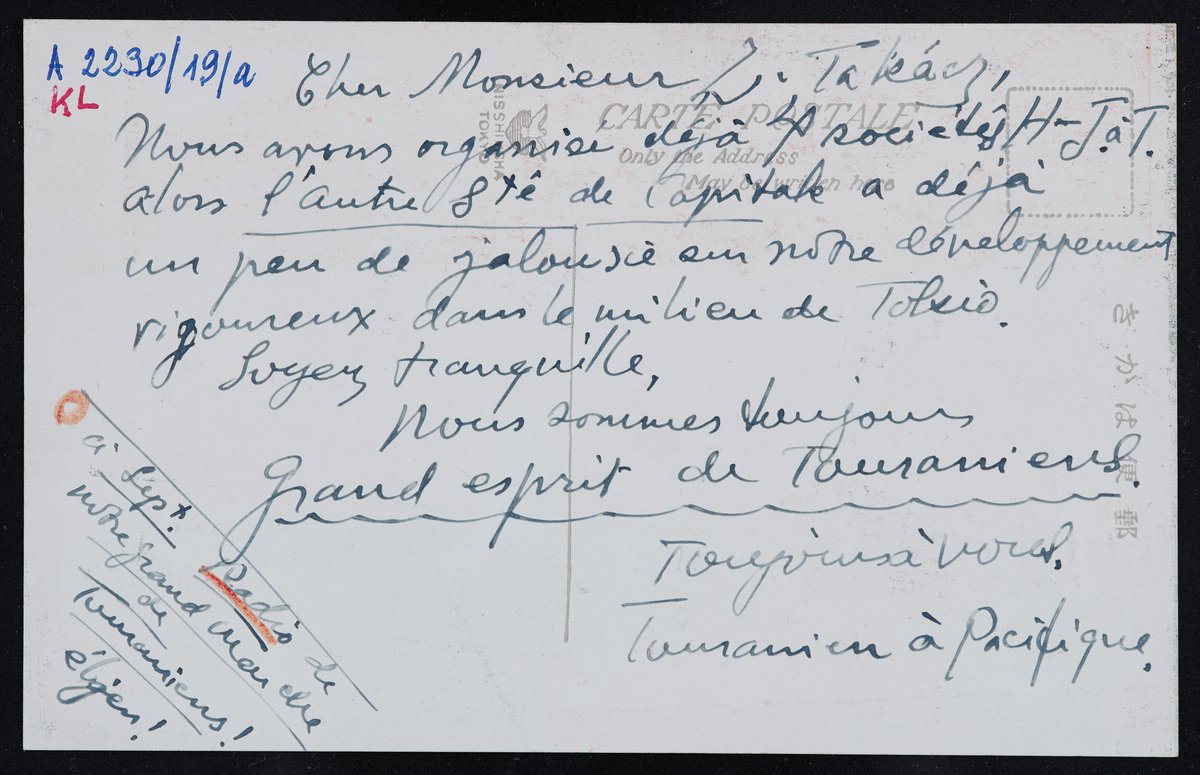 A 2230/19/a
KL
Cher Monsieur Z. Takács,
Nous avons organisé déjà 4 societés H-J.à.T.
alors l'autre Sté de Capitale a déjà
un peu de jalousie sur nôtre développement
vigoureux dans le milieu de Tokio.
Soyez tranquille,
Nous sommes toujours
Grand esprit de Touraniens.
Toujours à vous,
Touranien à Pacifique.
à Sept. Radio de
nôtre grand marche
de
Touraniens!
éljen!
CARTE POSTALE
Only the Address
May be written here
NISSHINSHA
TOKYO
きがは便郵